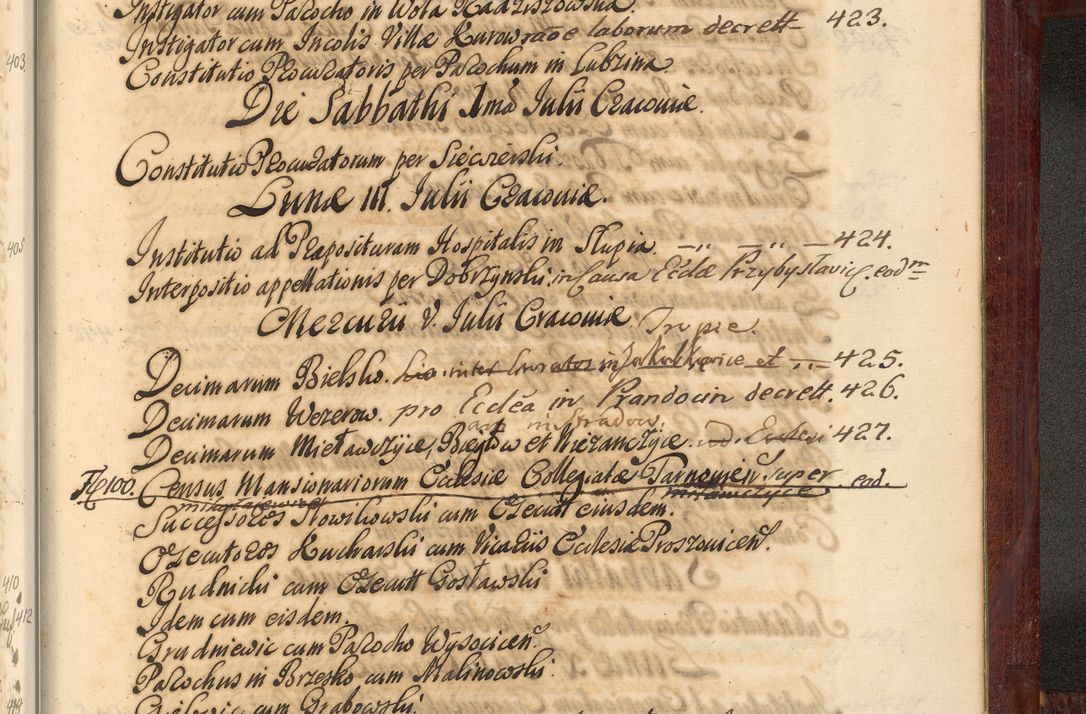 Instigator cum Parocho in Wola Radziszowska.
Instigator cum Incolis Villæ Kurow raõe laborum decrett 423.
Constitutio Procuratoris per Parochum in Lubzina.
Die Sabbathi Ima Iulii Cracoviæ.
Constitutio Procuratorum per Siecierski.
Lunæ III. Iulii Cracoviæ.
Institutio ad Præposituram Hospitalis in Slupia. —"— —"— 424.
Interpositio appellationis per Dobrzynski. in Causa Ecclæ Przybyslavic. eodm
Mercurii V. Iulii Cracoviæ
Decimarum Bielsko. inter et —"— 425.
Decimarum Wezerow. pro Ecclâ in Prandocin decrett. 426.
Decimarum Mieławczyce, Bieglow et Niezanczyce. 427.
Fl 100. Census Mansionariorum Ecclesiæ Collegiatæ Tarnovien. super eod.
Successores Slowikowski cum Execut eiusdem.
Executores Kucharski cum Vicariis Ecclesiæ Proszovicen.
Rudnicki cum Execut Gosławski
Idem cum eisdem.
Grudniewic cum Parocho Wysocicen.
Parochus in Brzesko cum Malinowski.
cum Grabowski.
403.
405
410
412